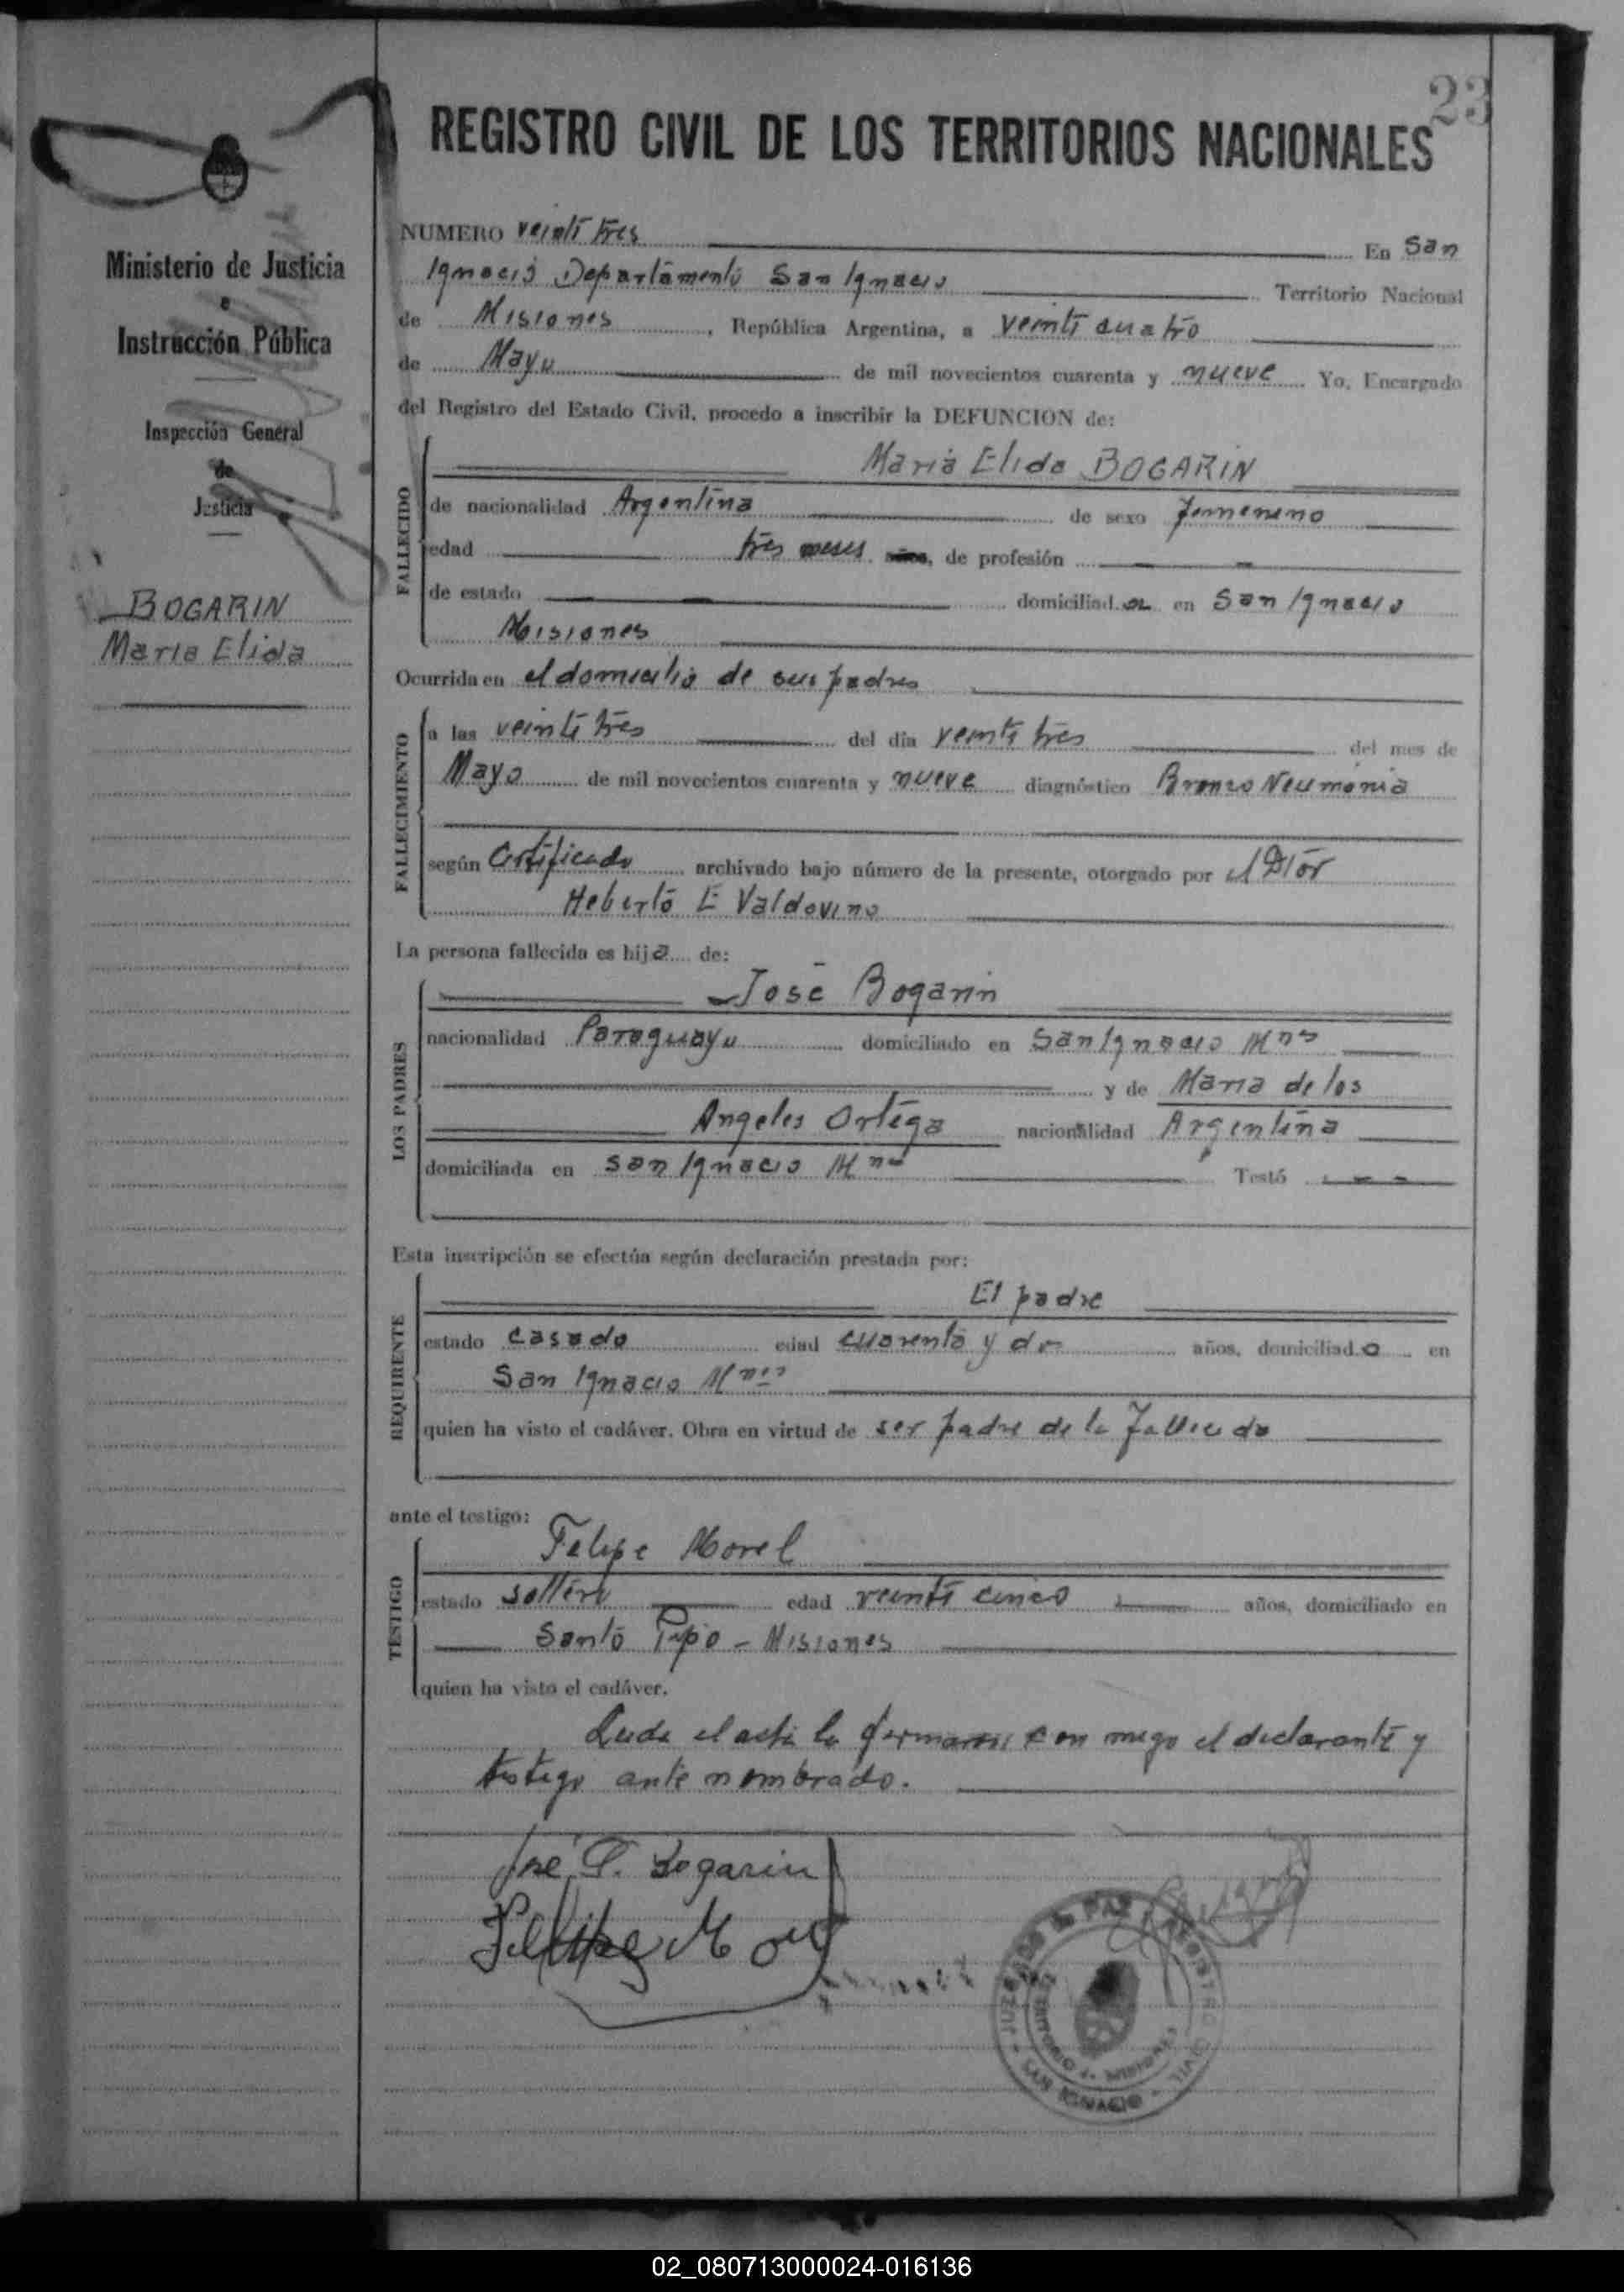 23
REGISTRO CIVIL DE LOS TERRITORIOS NACIONALES
Ministerio de Justicia
e
Instrucción Pública
Inspección General
de
Justicia
BOGARIN
Maria Elida
NUMERO veinti tres En San
Ignacio Departamento San Ignacio Territorio Nacional
de Misiones, República Argentina, a veinti cuatro
de Mayo de mil novecientos cuarenta y nueve Yo, Encargado
del Registro del Estado Civil, procedo a inscribir la DEFUNCION de:
FALLECIDO
Maria Elida BOGARIN
de nacionalidad Argentina de sexo femenino
edad tres meses años, de profesión
de estado domiciliada en San Ignacio
Misiones
Ocurrida en el domicilio de sus padres
FALLECIMIENTO
a las veinti tres del día veinti tres del mes de
Mayo de mil novecientos cuarenta y nueve diagnóstico Bronco Neumonia
según Certificado archivado bajo número de la presente, otorgado por el Dtor
Heberto E Valdovino
La persona fallecida es hija de:
LOS PADRES
José Bogarin
nacionalidad Paraguayo domiciliado en San Ignacio Mnes
y de Maria de los
Angeles Ortega nacionalidad Argentina
domiciliada en San Ignacio Mnes Testó
Esta inscripción se efectúa según declaración prestada por:
REQUIRENTE
El padre
estado casado edad cuarenta y dos años, domiciliado en
San Ignacio Mnes
quien ha visto el cadáver. Obra en virtud de ser padre de la fallecida
ante el testigo:
TESTIGO
Felipe Morel
estado soltero edad veinti cinco años, domiciliado en
Santo Pipo - Misiones
quien ha visto el cadáver.
Leida el acta la firmaron con migo el declarante y
testigo ante nombrado.
José P. Bogarin
Felipe Morel
JUZGADO DE PAZ Y REGISTRO CIVIL
TERRITORIO MISIONES
SAN IGNACIO
02_080713000024-016136